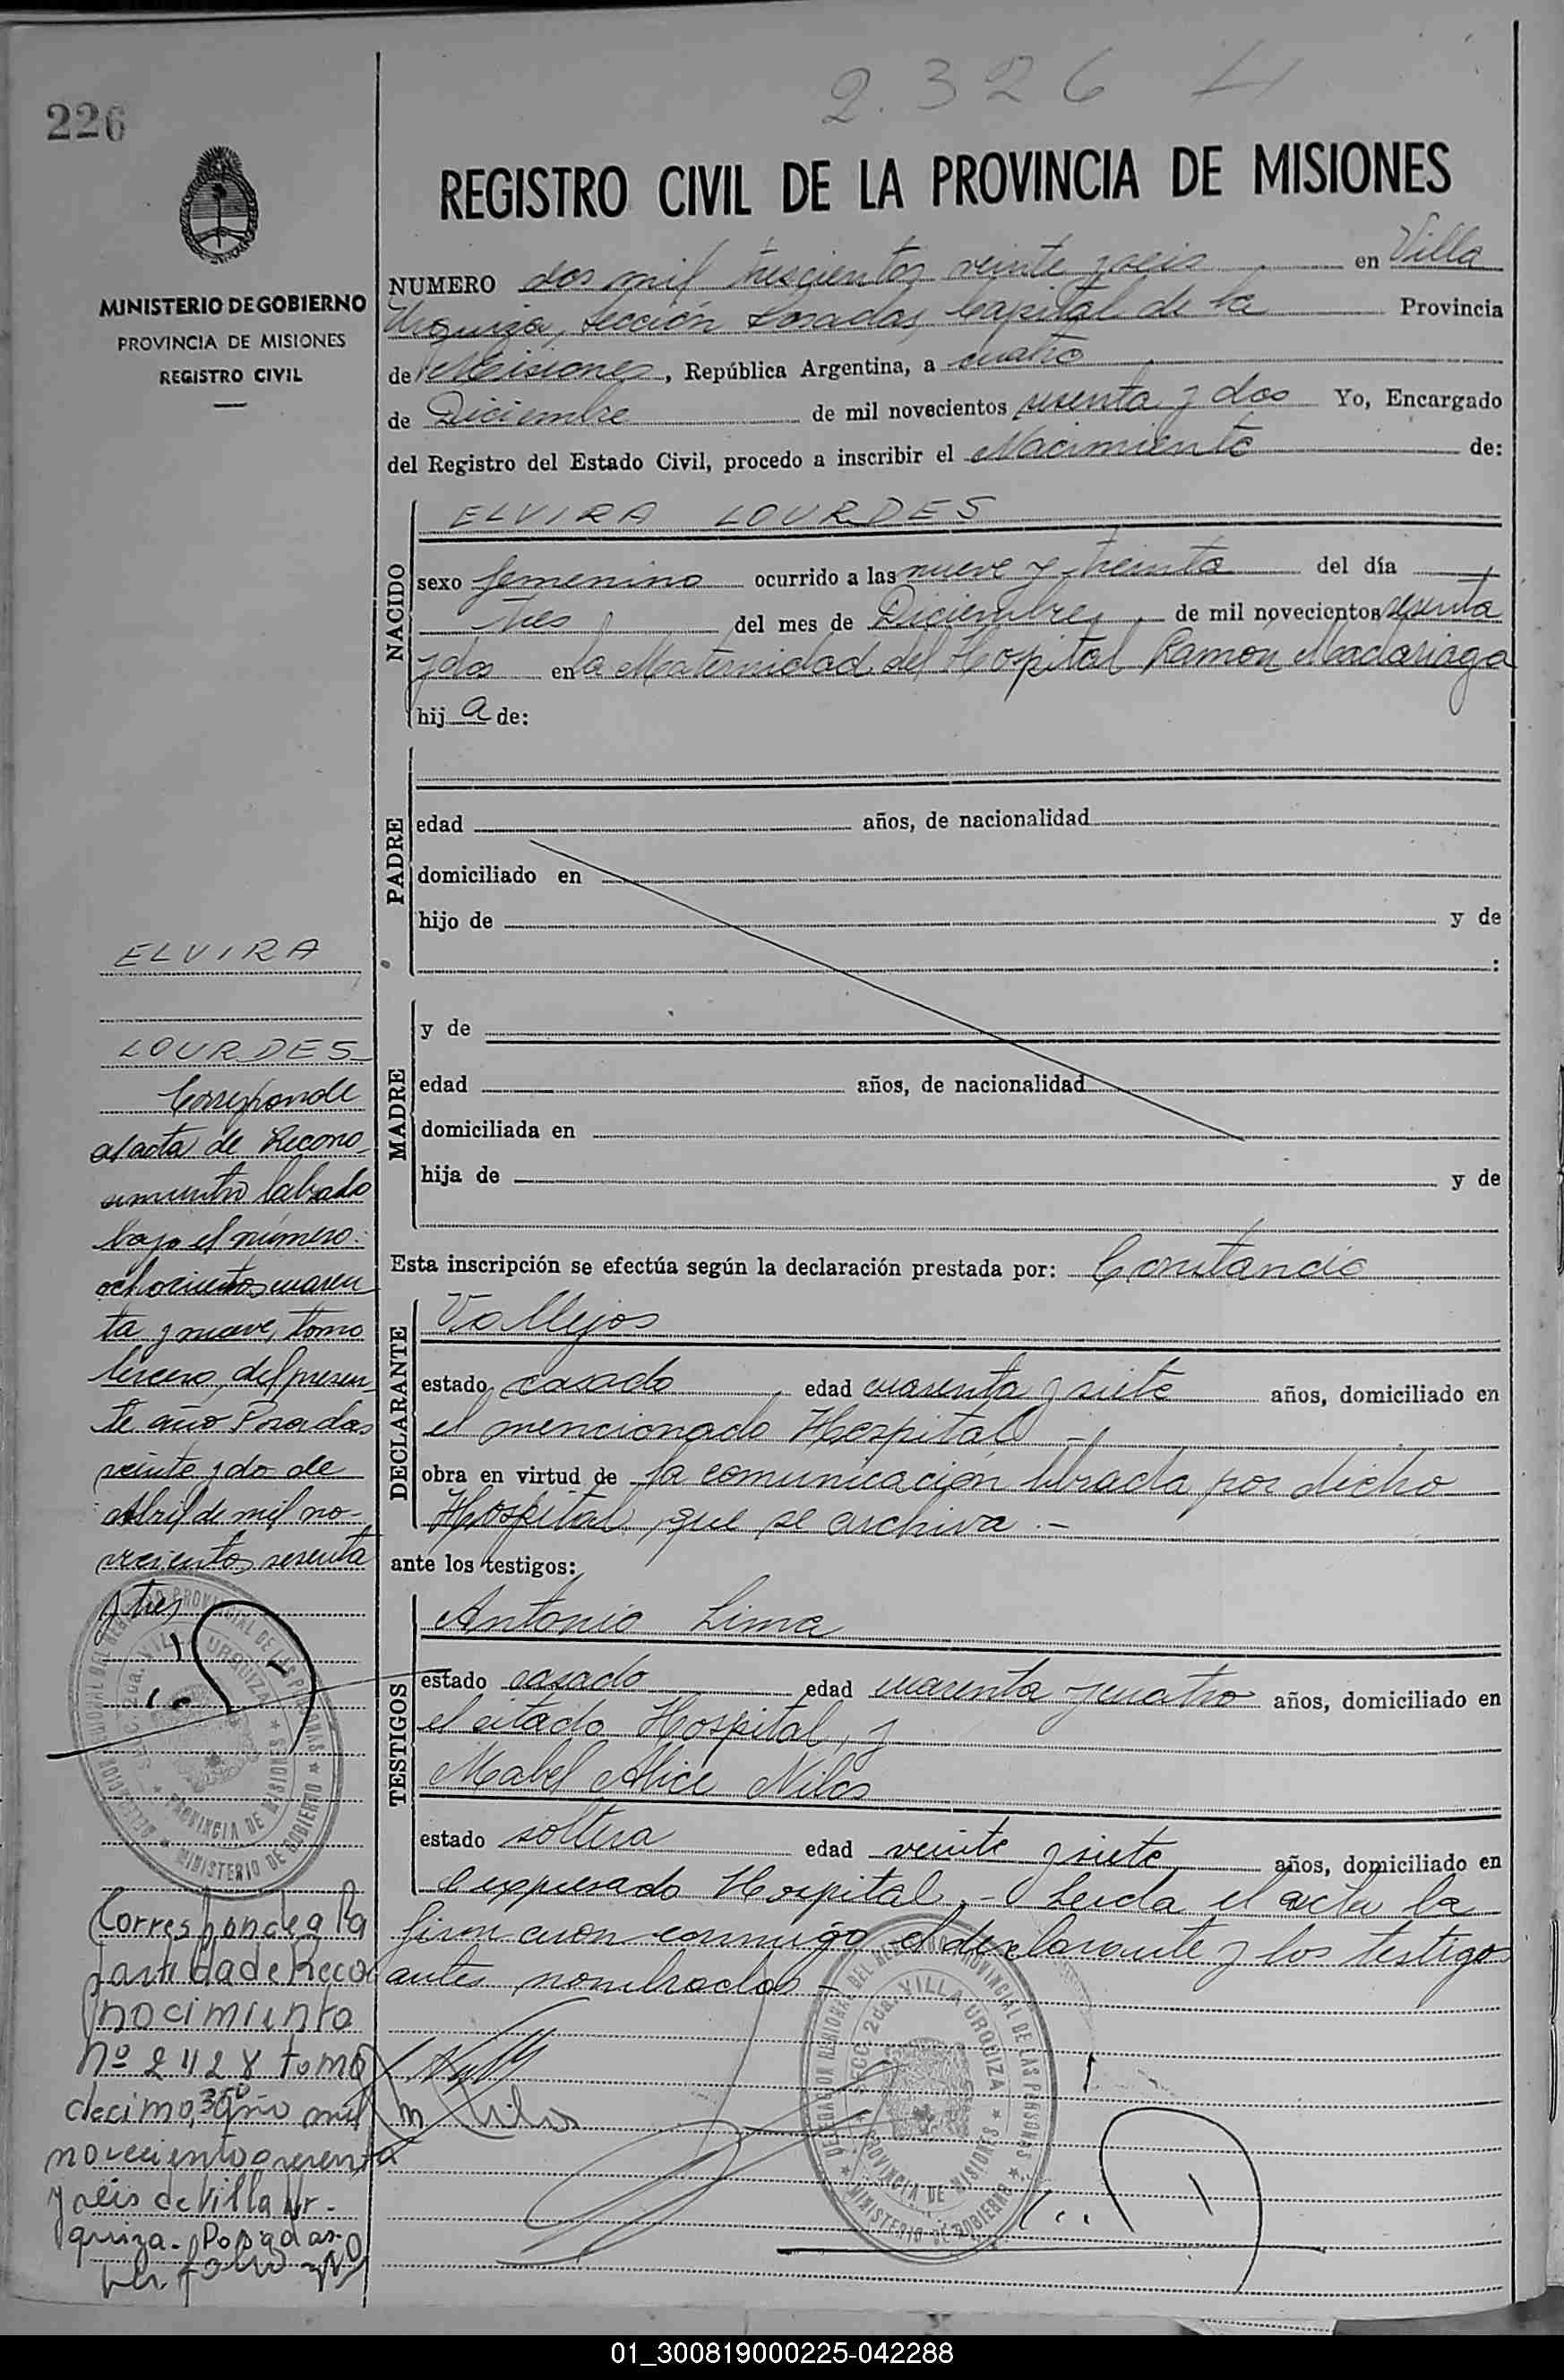 2.326
226
REGISTRO CIVIL DE LA PROVINCIA DE MISIONES
MINISTERIO DE GOBIERNO
PROVINCIA DE MISIONES
REGISTRO CIVIL
NUMERO dos mil trescientos veinte y seis en Villa
Urquiza, Sección Posadas, Capital de la Provincia
de Misiones, República Argentina, a cuatro
de Diciembre de mil novecientos sesenta y dos Yo, Encargado
del Registro del Estado Civil, procedo a inscribir el Nacimiento de:
NACIDO
ELVIRA LOURDES
sexo femenino ocurrido a las nueve y treinta del día
tres del mes de Diciembre de mil novecientos sesenta
y dos en la Maternidad del Hospital Ramón Madariaga
hij a de:
PADRE
edad años, de nacionalidad
domiciliado en
hijo de y de
:
MADRE
y de
edad años, de nacionalidad
domiciliada en
hija de y de
Esta inscripción se efectúa según la declaración prestada por: Constancio
DECLARANTE
Vallejos
estado casado edad cuarenta y siete años, domiciliado en
el mencionado Hospital -
obra en virtud de la comunicación librada por dicho
Hospital, que se archiva.-
ante los testigos:
TESTIGOS
Antonio Lima
estado casado edad cuarenta y cuatro años, domiciliado en
el citado Hospital, y
Mabel Alice Nilos
estado soltera edad veinte y siete años, domiciliado en
el expresado Hospital.- Leida el acta la
firmaron conmigo el declarante y los testigos
antes nombrados -
ELVIRA
LOURDES
Corresponde
al acta de Recono-
cimiento labrado
bajo el número:
ochocientos cuaren
ta y nueve, tomo
tercero, del presen-
te año Posadas
veinte y do de
Abril de mil no-
vecientos sesenta
y tres
DELEGACION REGIONAL DEL REGISTRO PROVINCIAL DE LAS PERSONAS
SECC. 2da. VILLA URQUIZA
PROVINCIA DE MISIONES
MINISTERIO DE GOBIERNO
Corresponde a la
partida de Reco
nocimiento
Nº 2428 tomo
decimo, 3º año mil
novecientos sesenta
y seis de Villa Ur-
quiza. Posadas
DELEGACION REGIONAL DEL REGISTRO PROVINCIAL DE LAS PERSONAS
SECC. 2da. VILLA URQUIZA
PROVINCIA DE MISIONES
MINISTERIO DE GOBIERNO
01_300819000225-042288